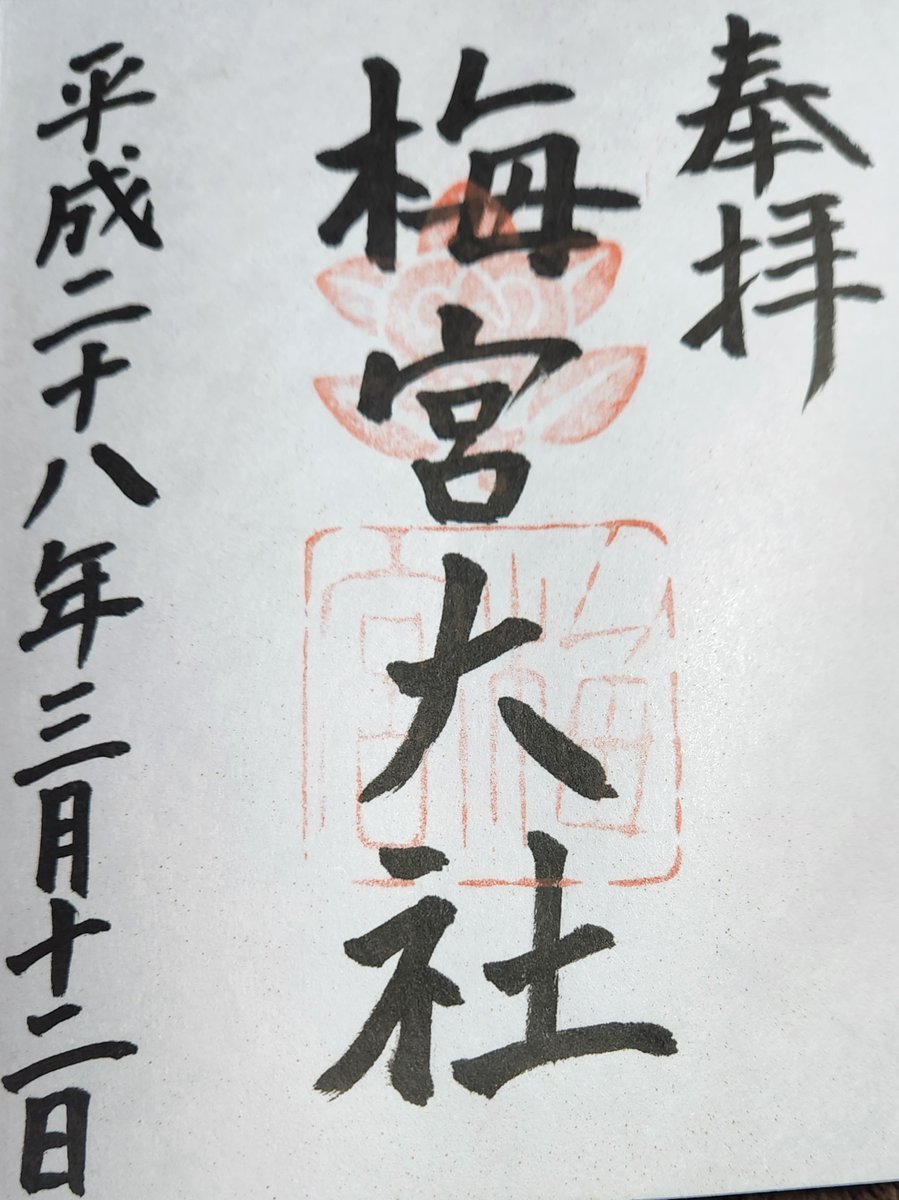 奉拝
梅宮大社
平成二十八年三月十二日
梅宮